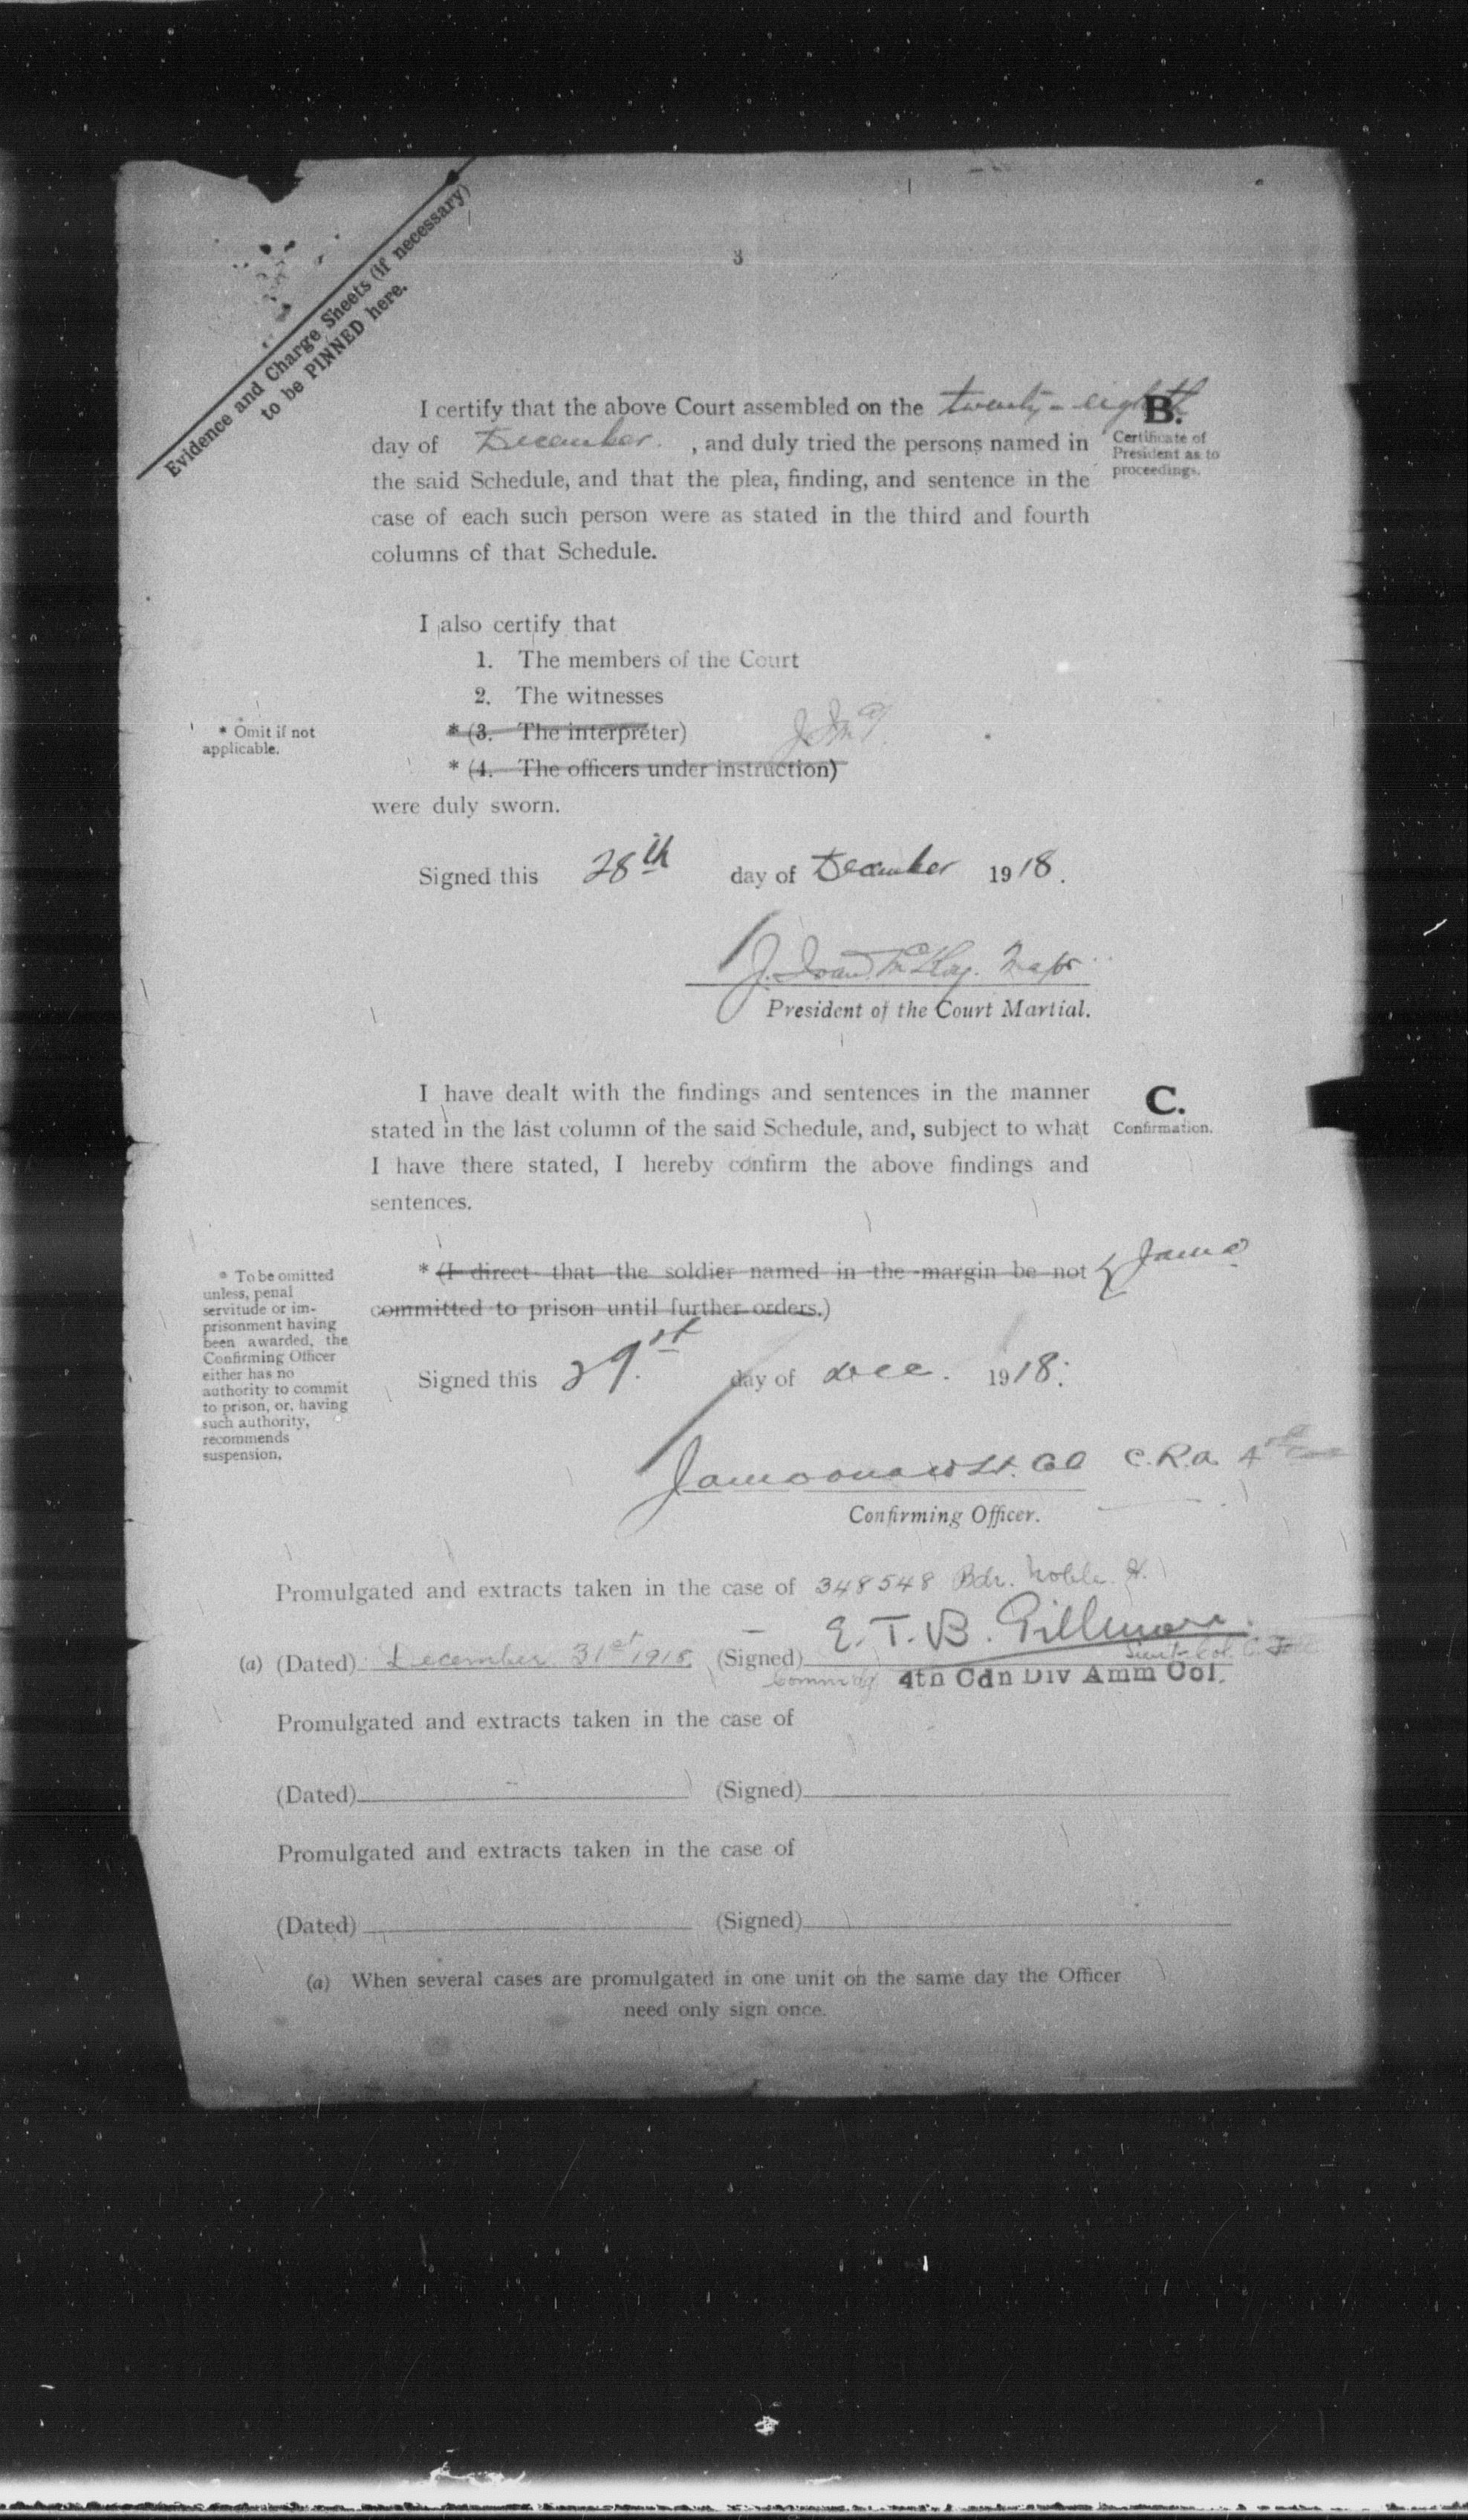 Evidence and Charge Sheets (if necessary)
to be PINNED here.
3
I certify that the above Court assembled on the twenty-eighth
day of December. , and duly tried the persons named in
the said Schedule, and that the plea, finding, and sentence in the
case of each such person were as stated in the third and fourth
columns of that Schedule.
B.
Certificate of
President as to
proceedings.
I also certify that
1. The members of the Court
2. The witnesses
* (3. The interpreter)
* (4. The officers under instruction)
were duly sworn.
* Omit if not
applicable.
Signed this 28th day of December 1918.
J. Major
President of the Court Martial.
I have dealt with the findings and sentences in the manner
stated in the last column of the said Schedule, and, subject to what
I have there stated, I hereby confirm the above findings and
sentences.
C.
Confirmation.
* (I direct that the soldier named in the margin be not
committed to prison until further orders.)
* To be omitted
unless, penal
servitude or im-
prisonment having
been awarded, the
Confirming Officer
either has no
authority to commit
to prison, or, having
such authority,
recommends
suspension.
Signed this 29.st day of Dec. 1918.
Lt. Col C.R.A. 4th
Confirming Officer.
Promulgated and extracts taken in the case of 348548 Bdr. Noble. H.
(a) (Dated) December 31st 1918 (Signed) E. T. B. Gillmore
Lieut-Col. C.
Commdg 4th Cdn Div Amm Col.
Promulgated and extracts taken in the case of
(Dated) (Signed)
Promulgated and extracts taken in the case of
(Dated) (Signed)
(a) When several cases are promulgated in one unit on the same day the Officer
need only sign once.